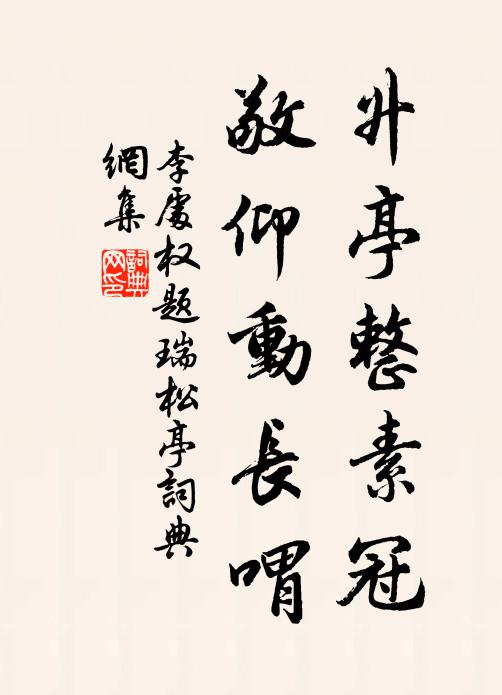 升亭整素冠
敬仰動長喟
李處权题瑞松亭詞典
網集
詞典
网印